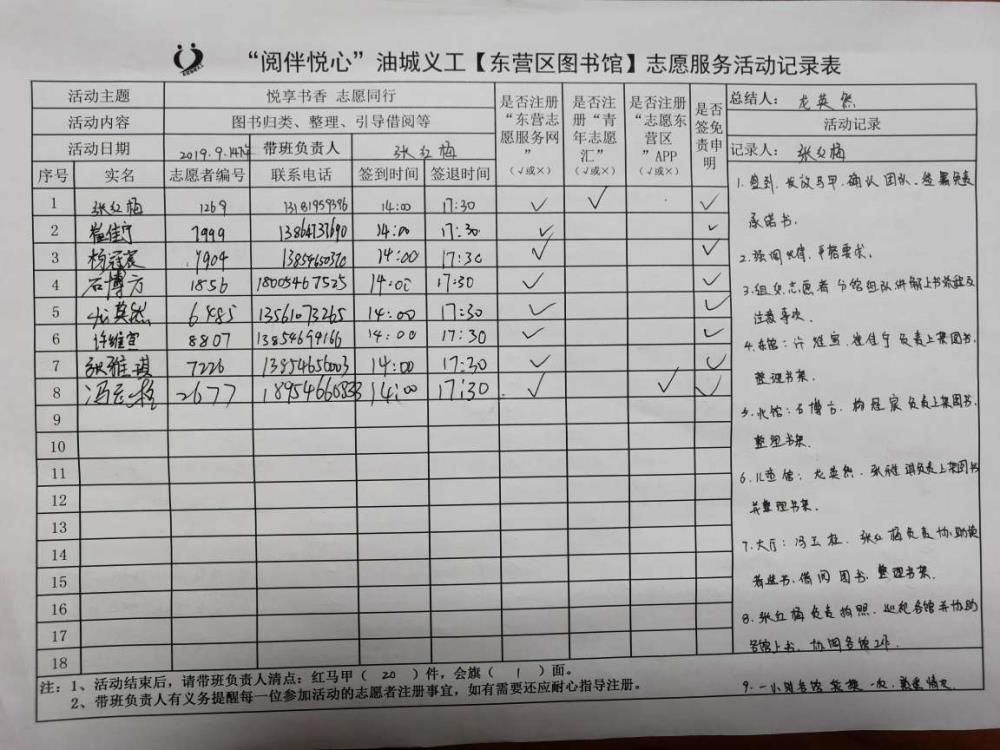 “阅伴悦心”油城义工【东营区图书馆】志愿服务活动记录表
活动主题 悦享书香 志愿同行 是否注册“东营志愿服务网”(√或×) 是否注册“青年志愿汇”(√或×) 是否注册“志愿东营区”APP(√或×) 是否签免责申明
活动内容 图书归类、整理、引导借阅等
活动日期 2019.9.14下午 带班负责人 张红梅
序号 实名 志愿者编号 联系电话 签到时间 签退时间
1 张红梅 1269 13181959396 14:00 17:30 √ √ √
2 崔佳宁 7999 13864737690 14:00 17:30 √ √
3 杨冠宸 7904 13854650370 14:00 17:30 √ √
4 石博方 1856 18005467525 14:00 17:30 √ √
5 龙英然 6485 13561073265 14:00 17:30 √ √
6 许维宣 8807 13854699166 14:00 17:30 √ √
7 张雅琪 7226 13854656003 14:00 17:30 √ √
8 冯玉 2677 18954666833 14:00 17:30 √ √ √
9
10
11
12
13
14
15
16
17
18
注：1、活动结束后，请带班负责人清点：红马甲（ 20 ）件，会旗（ 1 ）面。
2、带班负责人有义务提醒每一位参加活动的志愿者注册事宜，如有需要还应耐心指导注册。
总结人： 龙英然
活动记录
记录人： 张红梅
1.签到、发放马甲、确认团队、签署免责
承诺书.
2.强调纪律，严格要求.
3.组织志愿者分馆组队讲解上书流程及
注意事项.
4.东馆：许维宣、崔佳宁负责上架图书.
整理书架.
5.北馆：石博方、杨冠宸负责上架图书.
整理书架.
6.儿童馆：龙英然、张雅琪负责上架图书
并整理书架.
7.大厅：冯玉、张红梅负责协助读
者选书、借阅图书、整理书架.
8.张红梅负责拍照、巡视各馆并协助
各馆上书，协调各馆工作.
9.一小时各馆轮换一次，